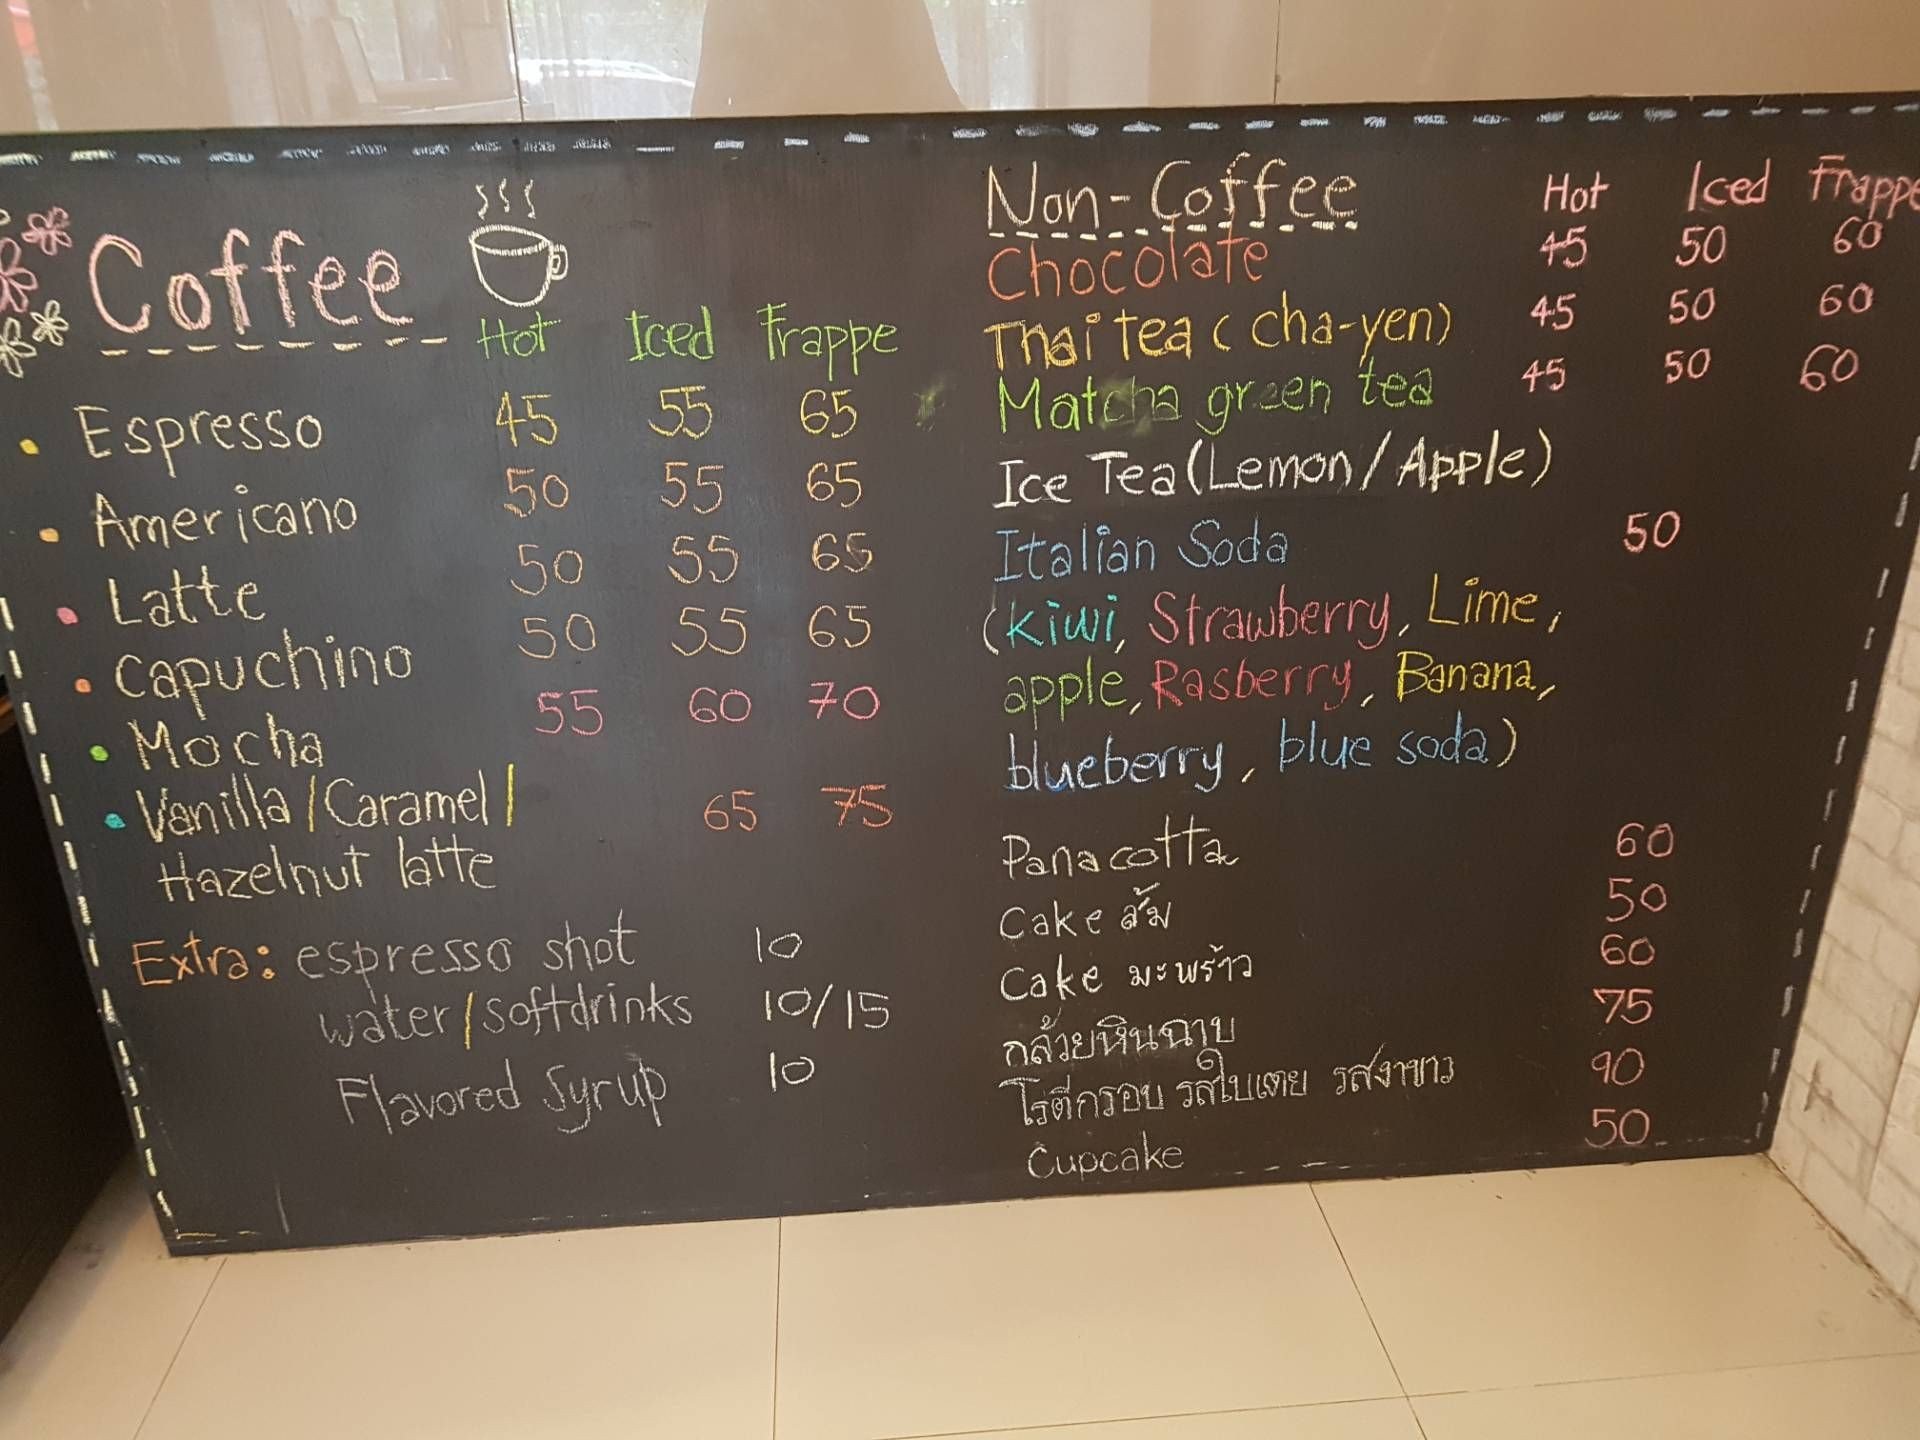 Coffee
Hot Iced Frappe
Espresso 45 55 65
Americano 50 55 65
Latte 50 55 65
Capuchino 50 55 65
Mocha 55 60 70
Vanilla/Caramel/ 65 75
Hazelnut latte
Extra: espresso shot 10
water/softdrinks 10/15
Flavored Syrup 10
Non-Coffee Hot Iced Frappe
Chocolate 45 50 60
Thai tea (cha-yen) 45 50 60
Matcha green tea 45 50 60
Ice Tea (Lemon/Apple)
Italian Soda 50
(kiwi, Strawberry, Lime,
apple, Rasberry, Banana,
blueberry, blue soda)
Panacotta 60
Cake ส้ม 50
Cake มะพร้าว 60
กล้วยหินฉาบ 75
โรตีกรอบ รสใบเตย รสงาขาว 90
Cupcake 50